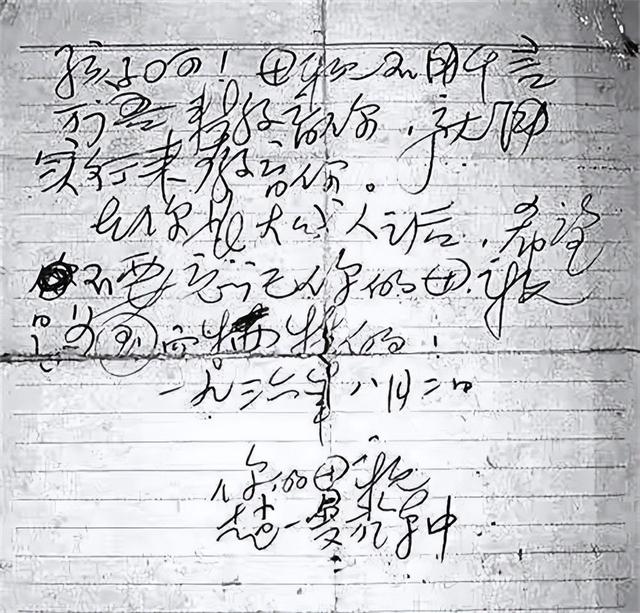 孩子呵！母亲不用千言
万语来教育你，就用
实行来教育你。
在你长大成人之后，希望
不要忘记你的母亲
是为国而牺牲的！
一九三六年八月二日
你的母亲
赵一曼于车中